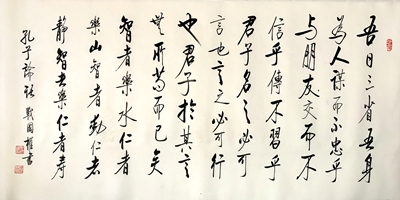 吾日三省吾身
為人謀而不忠乎
与朋友交而不
信乎傳不習乎
君子名之必可
言也言之必可行
也君子於其言
無所苟而已矣
智者樂水仁者
樂山智者動仁者
靜智者樂仁者寿
孔子論語